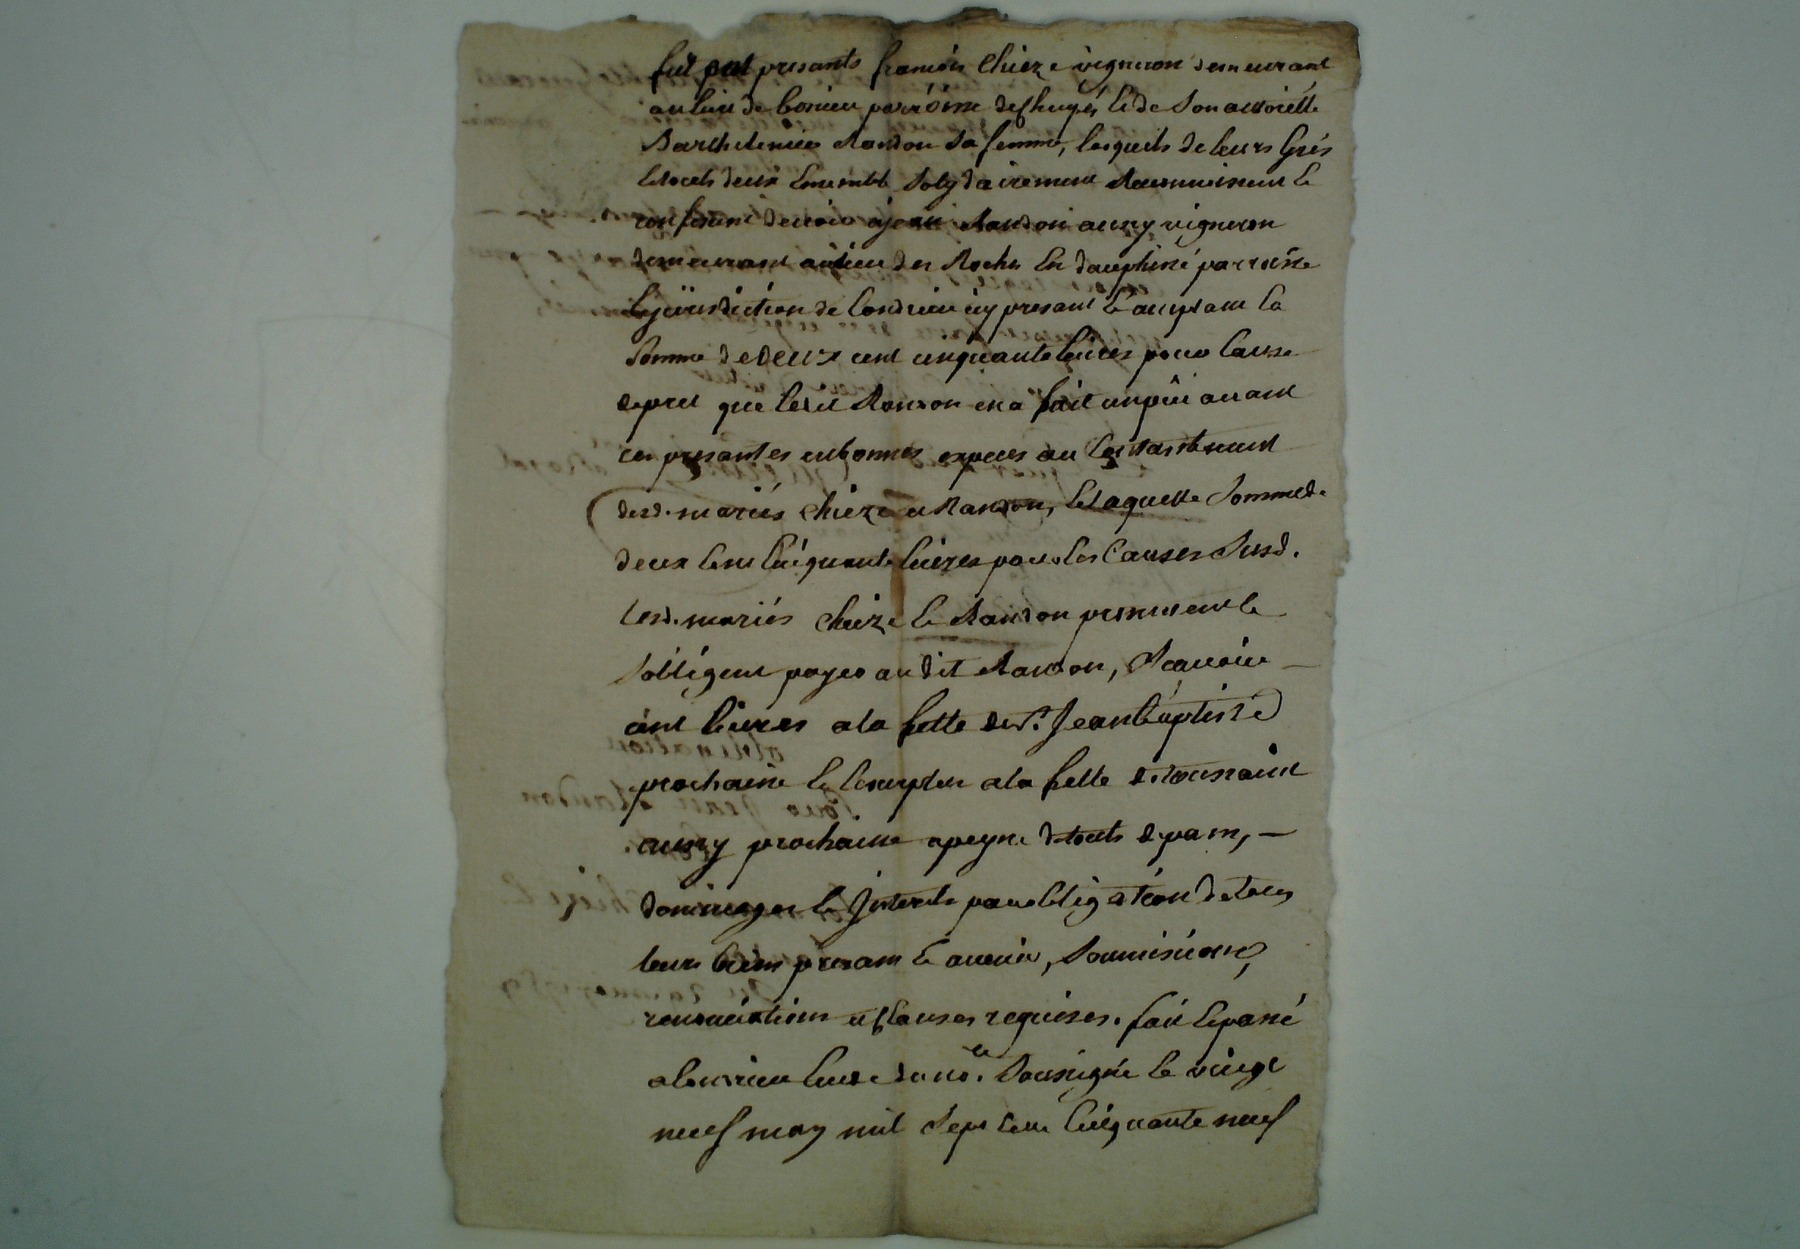 fut presants francois Chieze vigneron demeurant
au lieu de bonieu parroisse et de son authorité
Barthelemie Randon sa femme, lesquels de leurs grés
et tous deux Ensemble Solydairement Reconnoissent et
confessent devoir a jean Randon acuny vigneron
demeurant au lieu des Roches En dauphiné parroisse
et jurisdiction de Condrieu icy present et acceptant la
Somme de deux cent cinquante livres pour cause
de pret que ledit Randon en a fait avant
ces presantes en bonnes especes au Contantement
desd. mariés chieze et Randon, Et laquelle Somme de
deux Cent Cinquante livres pour les Causes Susd.
lesd. mariés chieze et Randon promettent et
s'obligent payer au dit Randon, Scavoir —
cent livres a la fette de St. Jean Baptiste
prochaine et le surplus a la fette de toussaint
aussy prochaine a peyne de touts depans, —
dommages et Interets par obligation de tous
leurs biens presans et avenir, Soumissions,
renonciations et Clauses requises. fait et passé
a Condrieu Etude du nore. Soussigné le vingt
neuf may mil Sept Cent Cinquante neuf